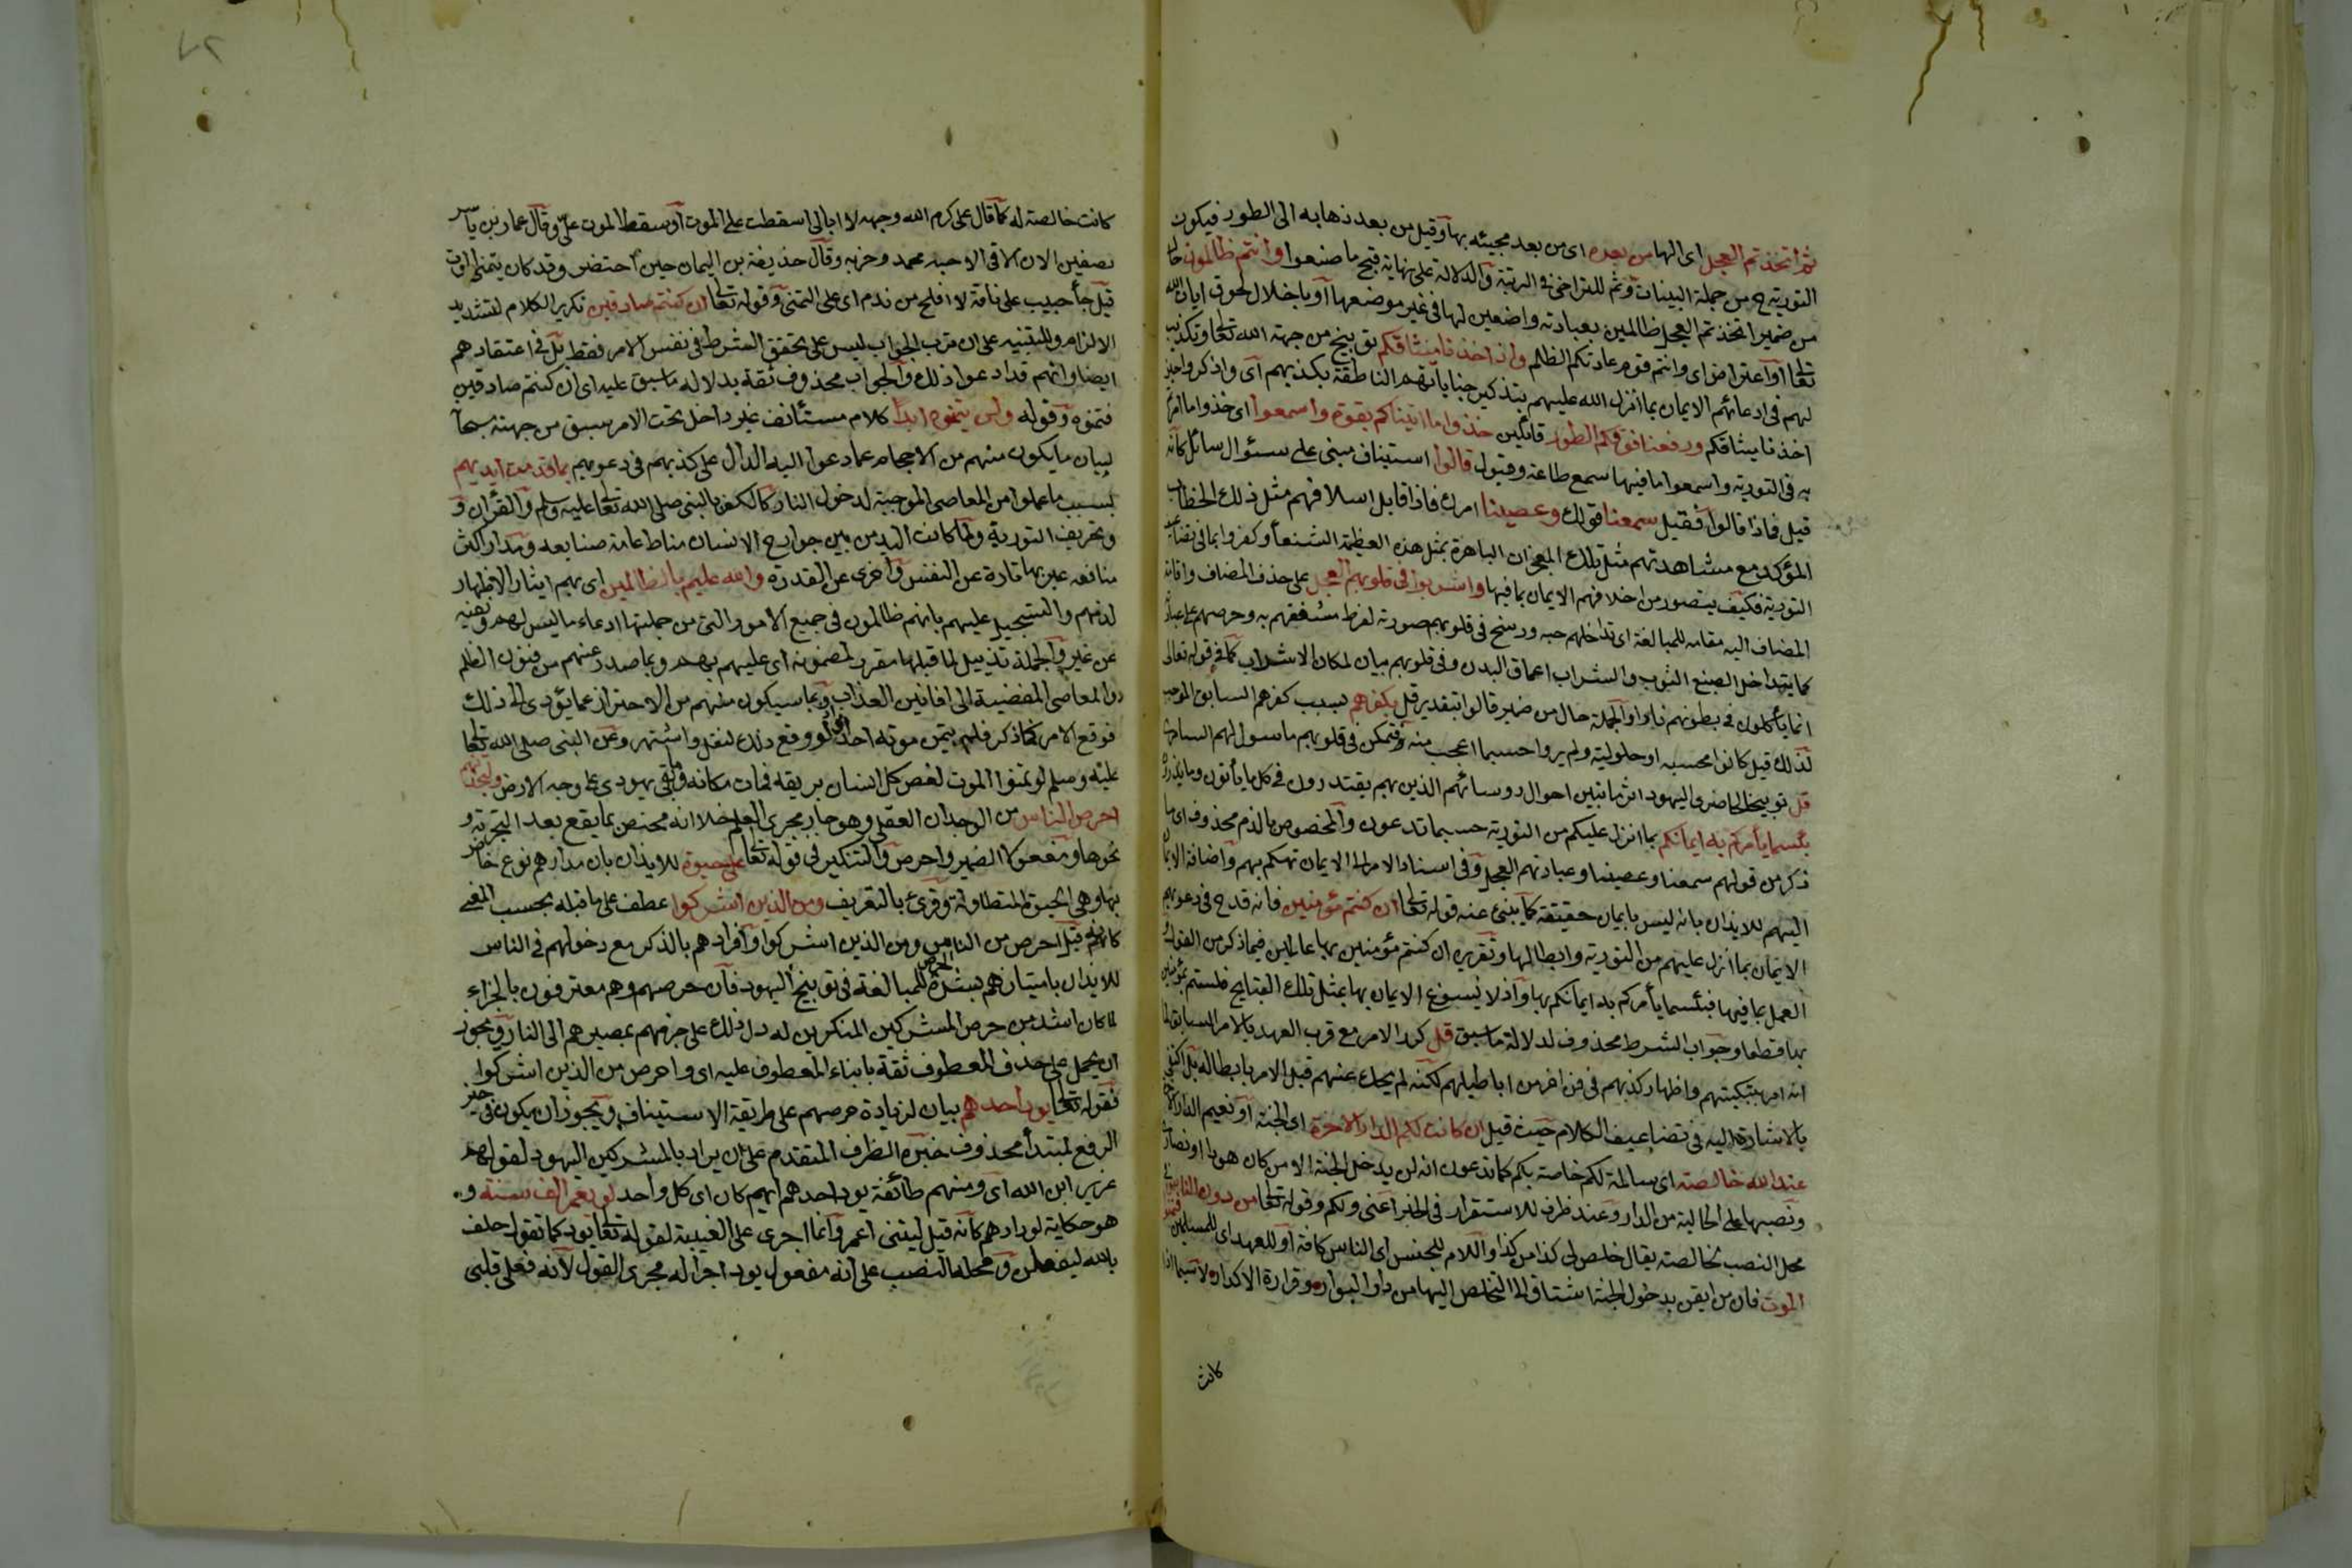 ثم اتخذتم العجل اى الها من بعده اى من بعد مجيئه بها وقيل من بعد ذهابه الى الطور فيكون
التورية ح من جملة البينات وثم للتراخى فى الرتبة والدلالة على نهاية قبح ما صنعوا وانتم ظالمون حال
من ضمير اتخذتم العجل ظالمين بعبادته واضعين لها فى غير موضعها او باخلال لحقوق ايات الله
تعالى او اعتراض اى وانتم قوم عادتكم الظلم واذ اخذنا ميثاقكم توبيخ من جهة الله تعالى وتكذيب
لهم فى ادعائهم الايمان بما انزل الله عليهم بتذكير جناياتهم الناطقة بكذبهم اى واذكروا حين
اخذنا ميثاقكم ورفعنا فوقكم الطور قائلين خذوا ما اتيناكم بقوة واسمعوا اى خذوا ما امرتم
به فى التورية واسمعوا ما فيها سمع طاعة وقبول قالوا استيناف مبنى على سئوال سائل كانه
قيل فماذا قالوا فقيل سمعنا قولك وعصينا امرك فاذا قابل اسلافهم مثل ذلك الخطاب
المؤكد مع مشاهدتهم مثل تلك المعجزات الباهرة بمثل هذه العظيمة الشنعا وكفروا بما فى تضاعيف
التورية فكيف يتصور من اخلافهم الايمان بما فيها واشربوا فى قلوبهم العجل على حذف المضاف واقامة
المضاف اليه مقامه للمبالغة اى تداخلهم حبه ورسخ فى قلوبهم صورته لفرط شغفهم به وحرصهم على عبادته
كما يتداخل الصبغ الثوب والشراب اعماق البدن وفى قلوبهم بيان لمكان الاشراب كما فى قوله تعالى
انما يأكلون فى بطونهم نارا والجملة حال من ضمير قالوا بتقدير قد بكفرهم بسبب كفرهم السابق الموجب
لذلك قيل كانوا مجسمة او حلولية ولم يروا جسما اعجب منه فتمكن فى قلوبهم ما سول لهم السامرى
قل توبيخا لحاضرى اليهود اثر ما تبين احوال روسائهم الذين بهم يقتدون فى كل ما يأتون وما يذرون
بئسما يأمركم به ايمانكم بما انزل عليكم من التورية حسبما تدعون والمخصوص بالذم محذوف اى ما
ذكر من قولهم سمعنا وعصينا وعبادتهم العجل وفى اسناد الامر الى الايمان تهكم بهم واضافة الايمان
اليهم للايذان بانه ليس بايمان حقيقة كما ينبئ عنه قوله تعالى ان كنتم مؤمنين فانه قدح فى دعويهم
الايمان بما انزل عليهم من التورية وابطال لها وتقريره ان كنتم مؤمنين بها عاملين فيما ذكر من القول و
العمل بما فيها فبئسما يأمركم به ايمانكم بها واذ لا يسوغ الايمان بها بمثل تلك القبايح فلستم بمؤمنين
بها قطعا وجواب الشرط محذوف لدلالة ما سبق قل كرر الامر مع قرب العهد بالامر السابق لما
انه امر بتبكيتهم واظهار كذبهم فى فن اخر من اباطيلهم لكنه لم يحك عنهم قبل الامر بابطاله بل اكتفى
بالاشارة اليه فى تضاعيف الكلام حيث قيل ان كانت لكم الدار الاخرة اى الجنة او نعيم الدار الاخرة
عند الله خالصة اى سالمة لكم خاصة بكم كما تدعون انه لن يدخل الجنة الا من كان هودا او نصارى
ونصبها على الحالية من الدار وعند ظرف للاستقرار فى الخبر اعنى ولكم وقوله تعالى من دون الناس فى
محل النصب بخالصة يقال خلص لى كذا من كذا واللام للجنس اى الناس كافة او للعهد اى للمسلمين فتمنوا
الموت فان من ايقن بدخول الجنة اشتاق الى التخلص اليها من دار البوار وقرارة الاكدار لا سيما اذا
كانت
كانت خالصة له كما قال على كرم الله وجهه لا ابالى اسقطت على الموت او سقط الموت علىّ وقال عمار بن ياسر
بصفين الان الاقى الاحبة محمد وحزبه وقال حذيفة بن اليمان حين احتضر وقد كان يتمنى الموت
قبل جاء حبيب على فاقة لا افلح من ندم اى على التمنى وقوله تعالى ان كنتم صادقين تكرير الكلام لتشديد
الالزام وللتنبيه على ان ترتب الجواب ليس على تحقق الشرط فى نفس الامر فقط بل فى اعتقادهم
ايضا وانهم قد ادعوا ذلك والجواب محذوف ثقة بدلالة ما سبق عليه اى ان كنتم صادقين
فتمنوه وقوله ولن يتمنوه ابدا كلام مستأنف غير داخل تحت الامر سيق من جهته سبحانه
لبيان ما يكون منهم من الاحجام عما دعوا اليه الدال على كذبهم فى دعويهم بما قدمت ايديهم
بسبب ما عملوا من المعاصى الموجبة لدخول النار كالكفر بالنبى صلى الله تعالى عليه وسلم والقرأن و
وتحريف التورية ولما كانت اليد من بين جوارح الانسان مناط عامة صنايعه ومدار اكثر
منافعه عبر بها تارة عن النفس واخرى عن القدرة والله عليم بالظالمين اى بهم ايثار الاظهار
لذمهم والتسجيل عليهم بانهم ظالمون فى جميع الامور التى من جملتها ادعاء ما ليس لهم ونفيه
عن غيرهم والجملة تذييل لما قبلها مقرر لمضمونه اى عليم بهم وبما صدر عنهم من فنون الظلم
والمعاصى المفضية الى افانين العذاب وبما سيكون منهم من الاحتراز عما يؤدى الى ذلك
فوقع الامر كما ذكر فلم يتمن موته احد اذ لو وقع ذلك لنقل واشتهر وعن النبى صلى الله تعالى
عليه وسلم لو تمنوا الموت لغص كل انسان بريقه فمات مكانه وما بقى يهودى على وجه الارض ولتجدنهم
احرص الناس من الوجدان العقلى وهو جار مجرى العلم خلا انه مختص بما يقع بعد التجربة و
نحوها ومفعولاه الضمير واحرص والتنكير فى قوله تعالى على حيوة للايذان بان مرادهم نوع خاص
منها وهى الحيوة المتطاولة وقرئ بالتعريف ومن الذين اشركوا عطف على ما قبله بحسب المعنى
كانه قيل احرص من الناس ومن الذين اشركوا وافرادهم بالذكر مع دخولهم فى الناس
للايذان بامتيازهم بشدة الحرص للمبالغة فى توبيخ اليهود فان حرصهم وهم معترفون بالجزاء
لما كان اشد من حرص المشركين المنكرين له دل ذلك على جزمهم بمصيرهم الى النار ويجوز
ان يحمل على حذف المعطوف ثقة بانباء المعطوف عليه اى واحرص من الذين اشركوا
فقوله تعالى يود احدهم بيان لزيادة حرصهم على طريقة الاستيناف ويجوز ان يكون فى حيز
الرفع لمبتدأ محذوف خبره الظرف المتقدم على ان يراد بالمشركين اليهود لقولهم
عزير ابن الله اى ومنهم طائفة يود احدهم ايهم كان اى كل واحد لو يعمر الف سنة و
هو حكاية لودادهم كأنه قيل ليتنى اعمر وانما اجرى على الغيبة لقوله تعالى يود كما تقول حلف
بالله ليفعلن ومحله النصب على انه مفعول يود اجراء له مجرى القول لأنه فعل قلبى